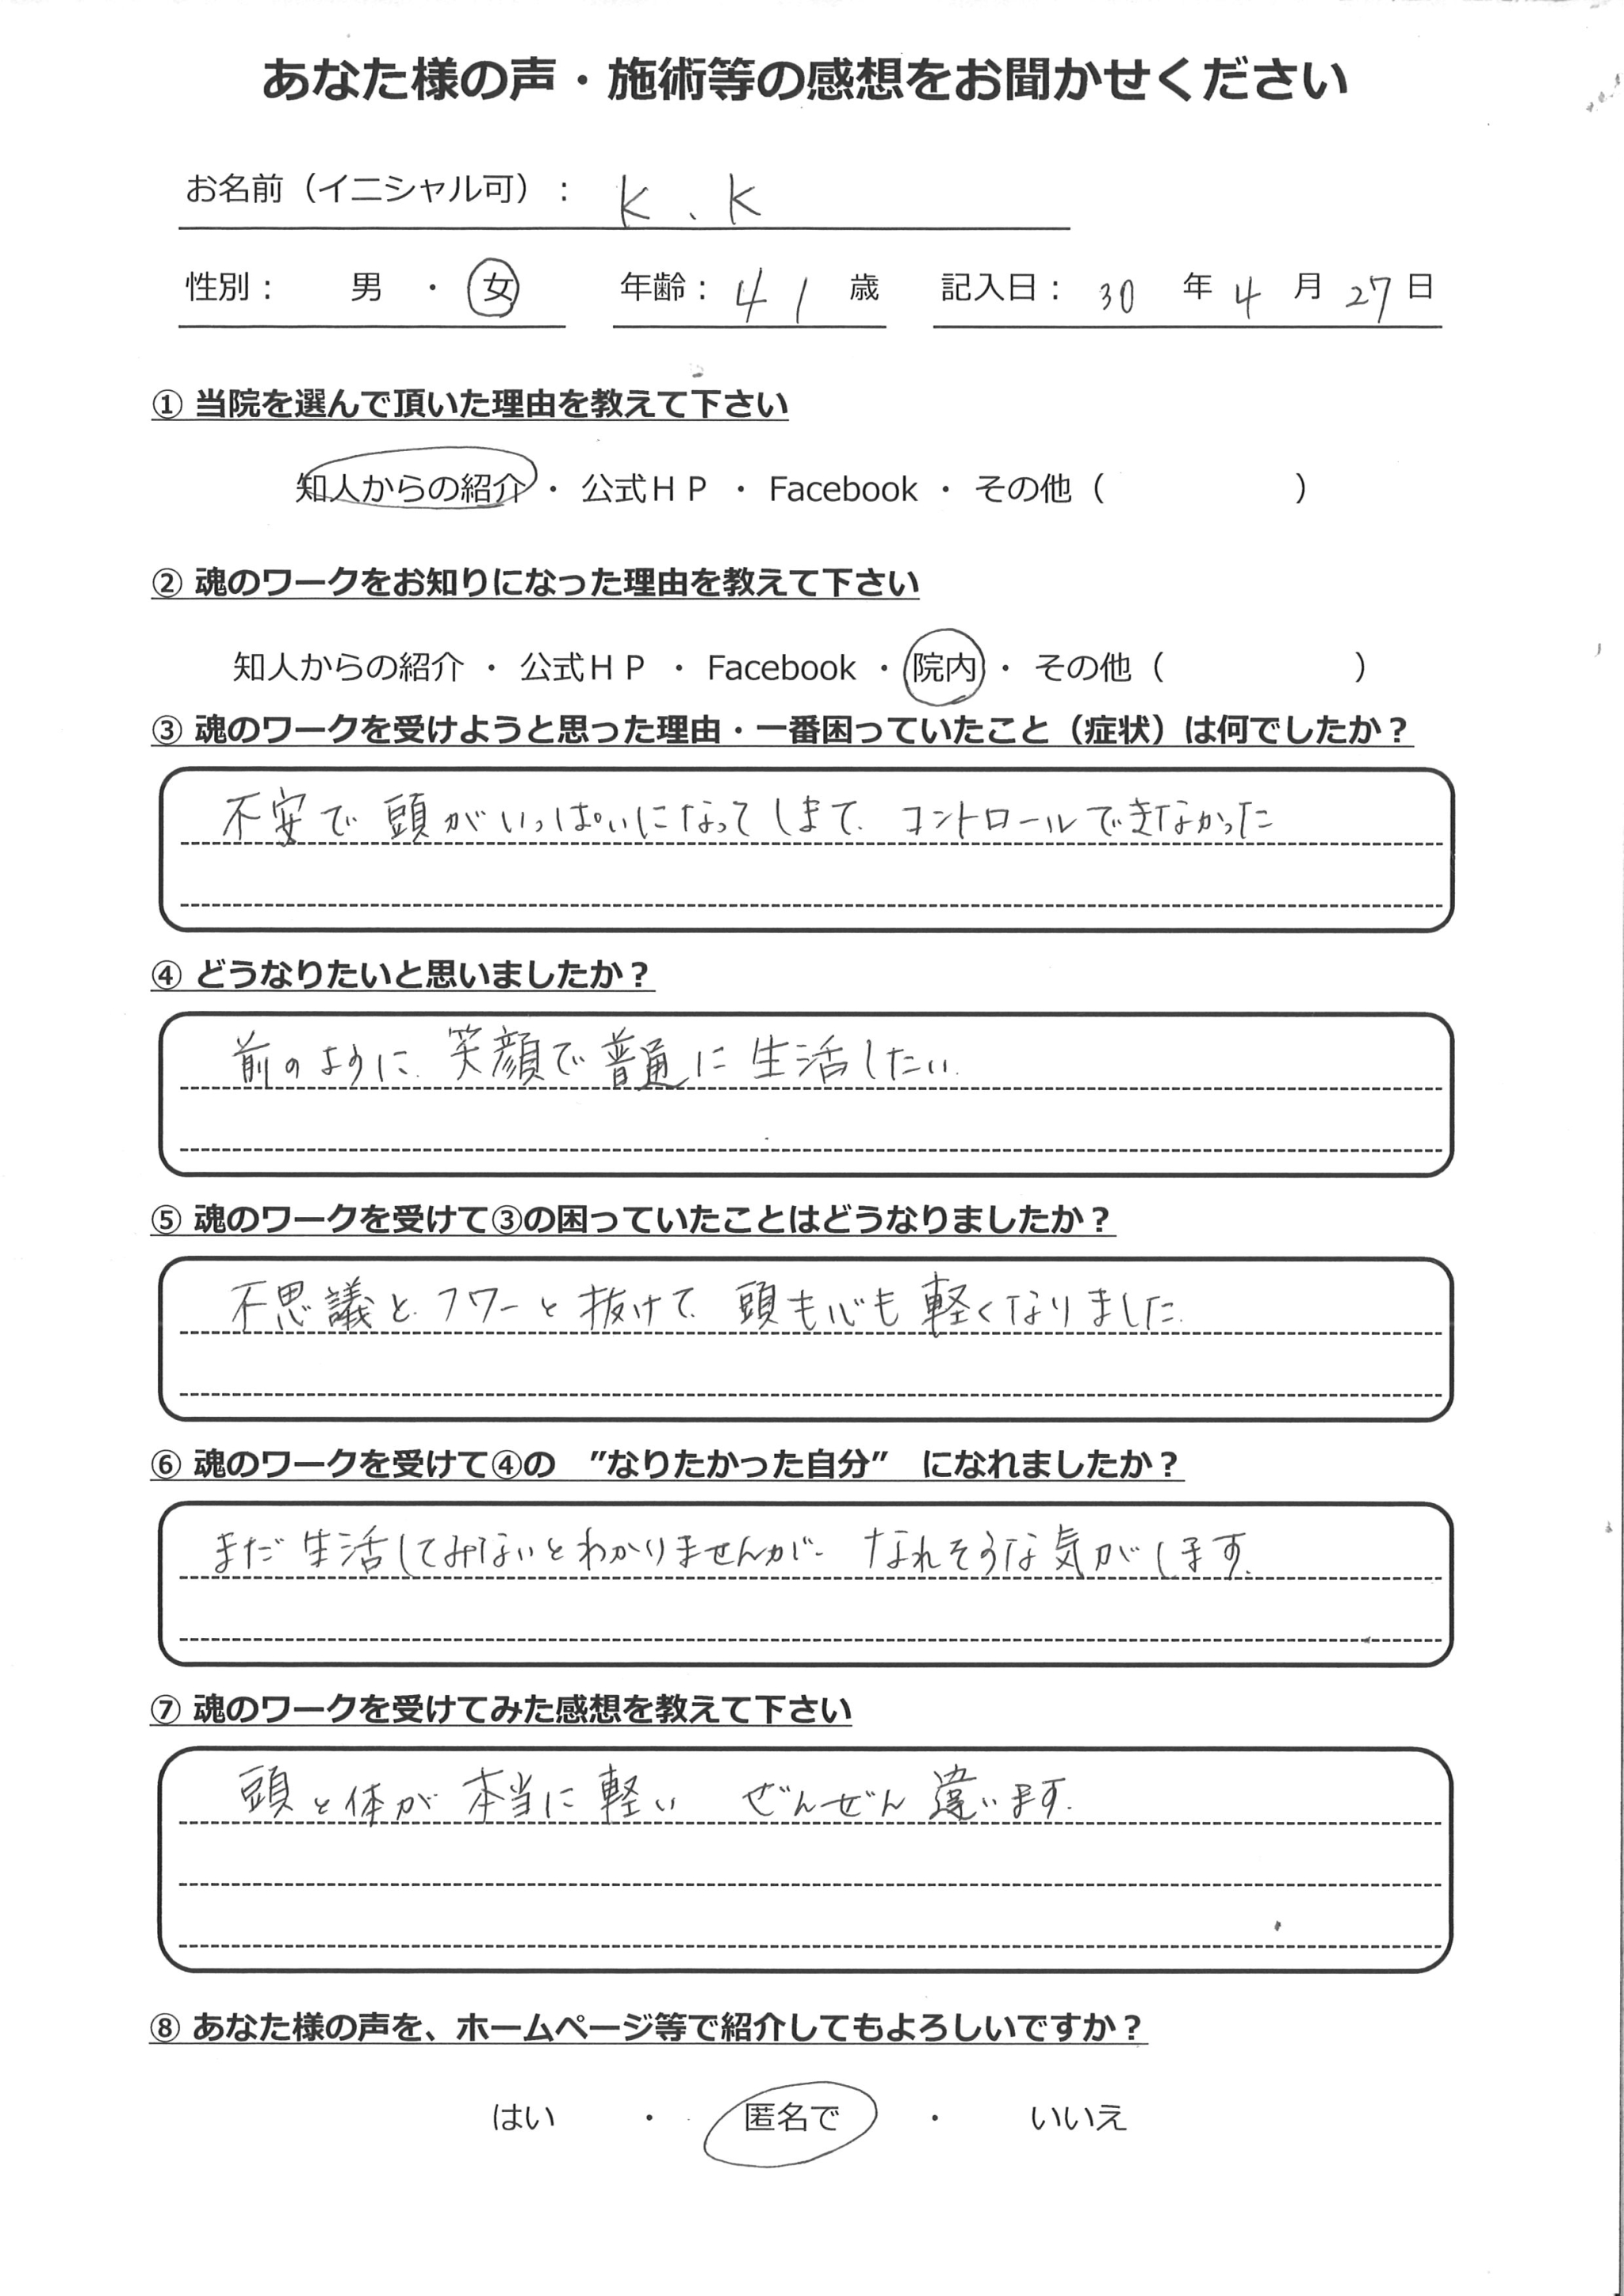 あなた様の声・施術等の感想をお聞かせください
お名前（イニシャル可）： K、K
性別： 男 ・ 女 年齢： 41 歳 記入日： 30 年 4 月 27 日
① 当院を選んで頂いた理由を教えて下さい
知人からの紹介 ・ 公式ＨＰ ・ Facebook ・ その他（ ）
② 魂のワークをお知りになった理由を教えて下さい
知人からの紹介 ・ 公式ＨＰ ・ Facebook ・ 院内 ・ その他（ ）
③ 魂のワークを受けようと思った理由・一番困っていたこと（症状）は何でしたか？
不安で頭がいっぱいになってしまて、コントロールできなかった
④ どうなりたいと思いましたか？
前のように、笑顔で普通に生活したい。
⑤ 魂のワークを受けて③の困っていたことはどうなりましたか？
不思議と、フワーと抜けて、頭も心も軽くなりました。
⑥ 魂のワークを受けて④の ”なりたかった自分” になれましたか？
まだ生活してみないとわかりませんが、なれそうな気がします。
⑦ 魂のワークを受けてみた感想を教えて下さい
頭と体が本当に軽い ぜんぜん違います。
⑧ あなた様の声を、ホームページ等で紹介してもよろしいですか？
はい ・ 匿名で ・ いいえ